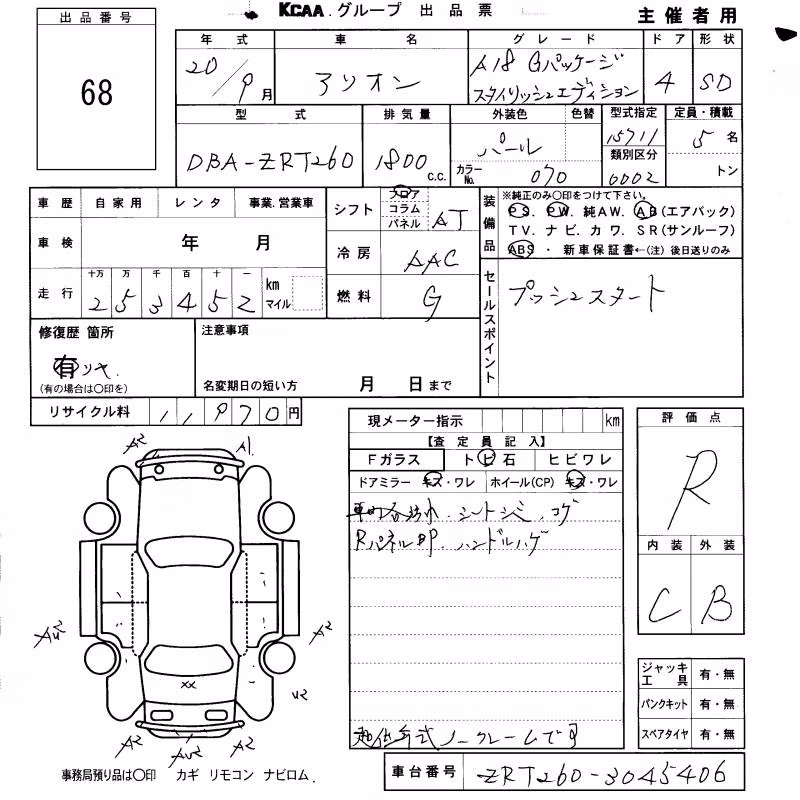 KCAA グループ 出品票
主催者用
出品番号
68
年式 車名 グレード ドア 形状
20/9月 アリオン A18 Gパッケージ 4 SD
スタイリッシュエディション
型式 排気量 外装色 色替 型式指定 定員・積載
DBA-ZRT260 1800 c.c. パール 15711 5名
カラーNo. 070 類別区分 0002 トン
車歴 自家用 レンタ 事業.営業車
車検 年 月
走行 十万 万 千 百 十 一 km マイル
2 5 3 4 5 2
シフト フロア コラム パネル AT
冷房 AAC
燃料 G
装備品 ※純正のみ○印をつけて下さい。
PS. PW. 純AW. AB(エアバック)
TV. ナビ. カワ. SR(サンルーフ)
ABS ・ 新車保証書←(注) 後日送りのみ
セールスポイント
プッシュスタート
修復歴 箇所
有
(有の場合は○印を)
注意事項
名変期日の短い方 月 日まで
リサイクル料 11970円
現メーター指示 km
【査定員記入】
Fガラス トビ石 ヒビワレ
ドアミラー キズ・ワレ ホイール(CP) キズ・ワレ
車内合汚れ. シートシミ. コゲ
RパネルBP. ハンドルハゲ
超低年式ノークレームです
評価点
R
内装 外装
C B
ジャッキ工具 有・無
パンクキット 有・無
スペアタイヤ 有・無
A2 A1
AU2 A2
U2
XX
A2 AU2 A2
事務局預り品は○印 カギ リモコン ナビロム.
車台番号 ZRT260-3045406